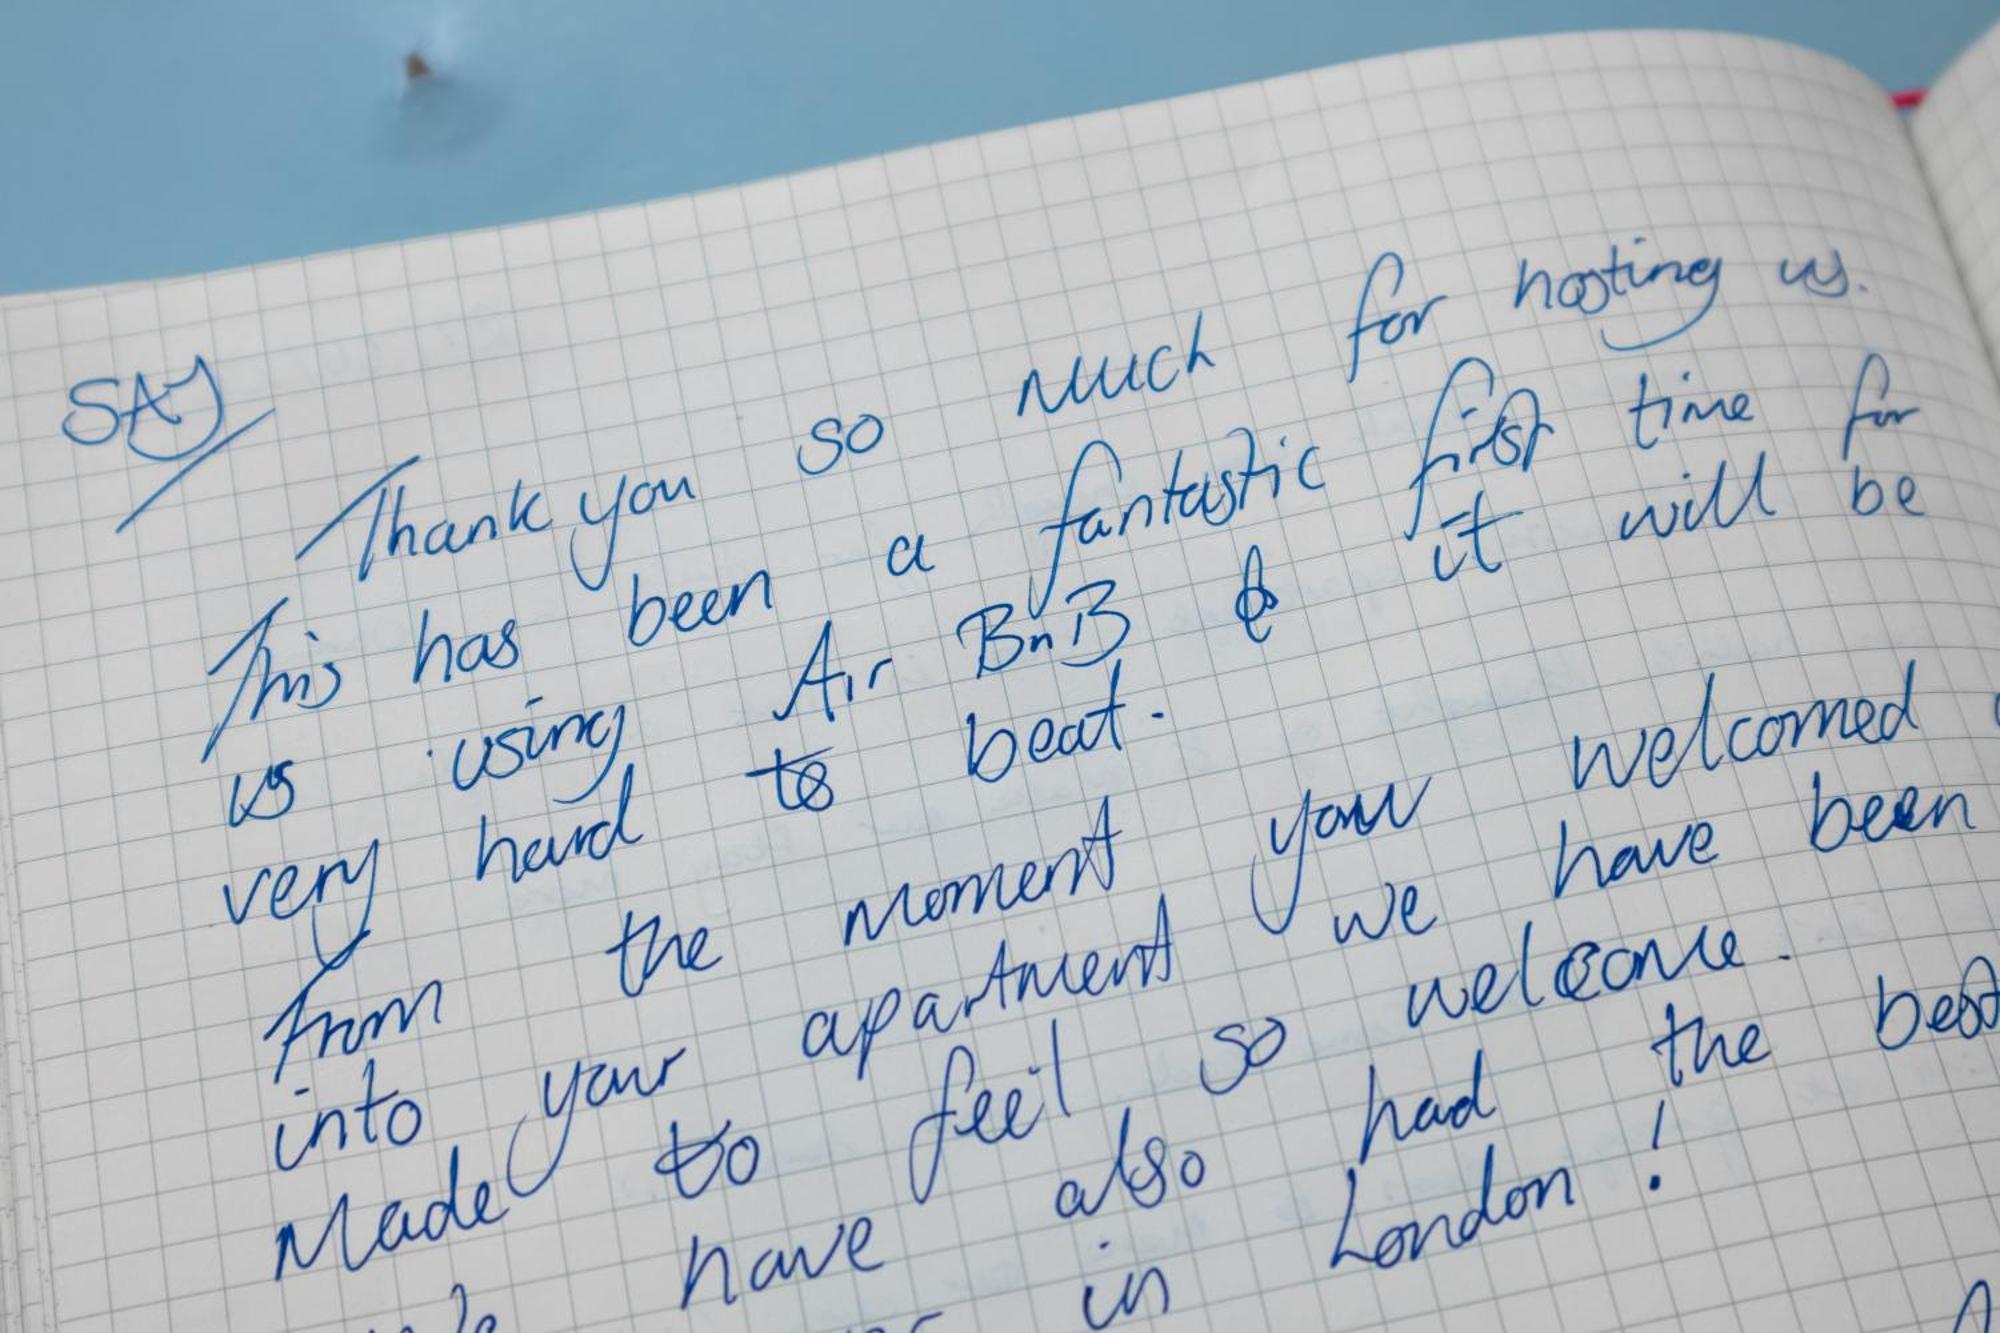 SAJ
Thank you so much for hosting us.
This has been a fantastic first time for
us using Air BnB & it will be
very hard to beat.
From the moment you welcomed
into your apartment we have been
Made to feel so welcome.
have also had the best
in London!